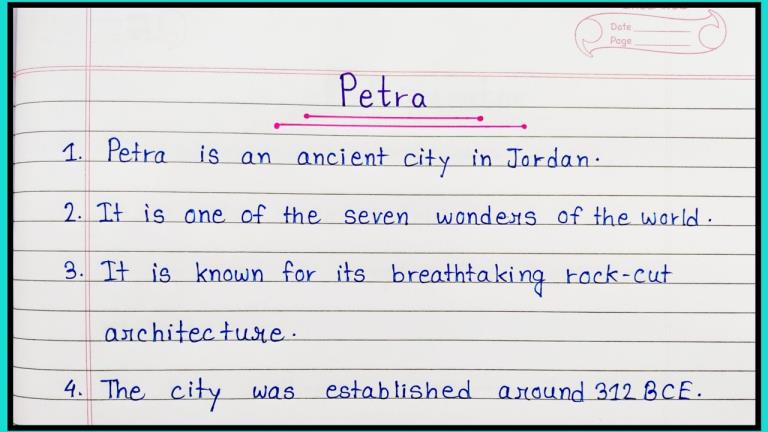 Date
Page
Petra
1. Petra is an ancient city in Jordan.
2. It is one of the seven wonders of the world.
3. It is known for its breathtaking rock-cut
architecture.
4. The city was established around 312 BCE.